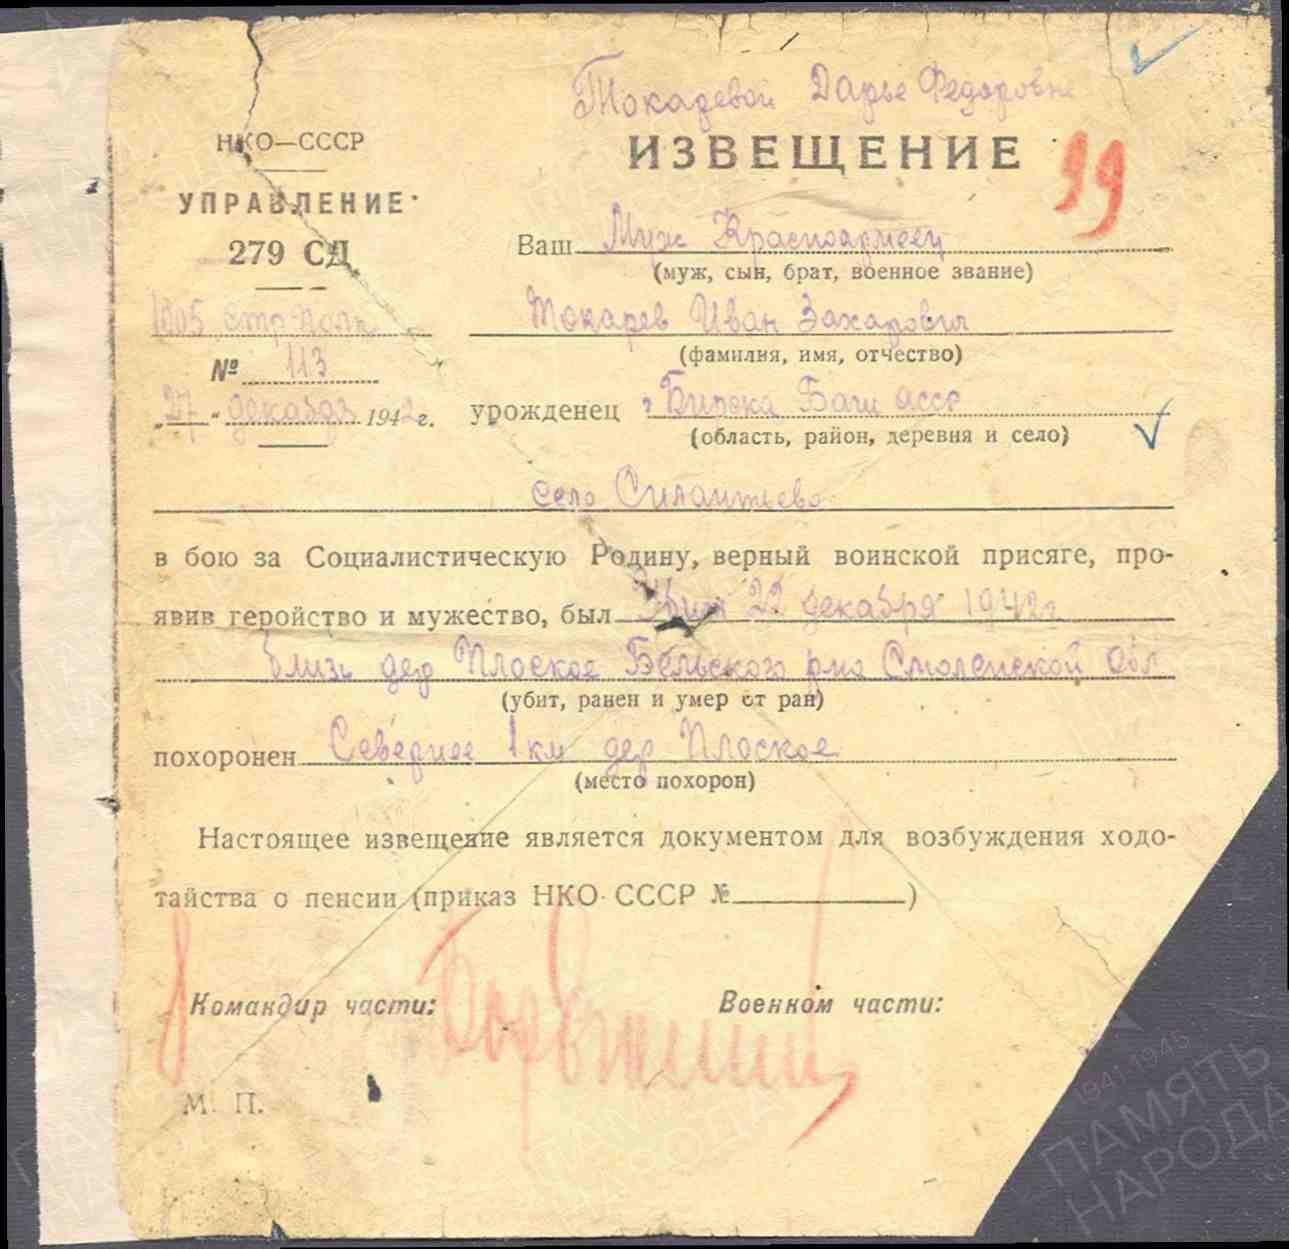 Токаревой Дарье Федоровне
НКО—СССР
ИЗВЕЩЕНИЕ
99
УПРАВЛЕНИЕ
279 СД
Ваш Муж Красноармеец
(муж, сын, брат, военное звание)
1005 Стр Полк
Токарев Иван Захарович
(фамилия, имя, отчество)
№ 113
„27“ декабря 1942 г.
урожденец г Бирска Баш АССР
(область, район, деревня и село)
село Силантьево
в бою за Социалистическую Родину, верный воинской присяге, про-
явив геройство и мужество, был Убит 22 декабря 1942 г
близь дер Плоское Бельского р-на Смоленской обл
(убит, ранен и умер от ран)
похоронен Севернее 1 км дер Плоское
(место похорон)
Настоящее извещение является документом для возбуждения ходо-
тайства о пенсии (приказ НКО СССР №          )
Командир части:
Военком части:
М. П.
1941 1945
ПАМЯТЬ
НАРОДА